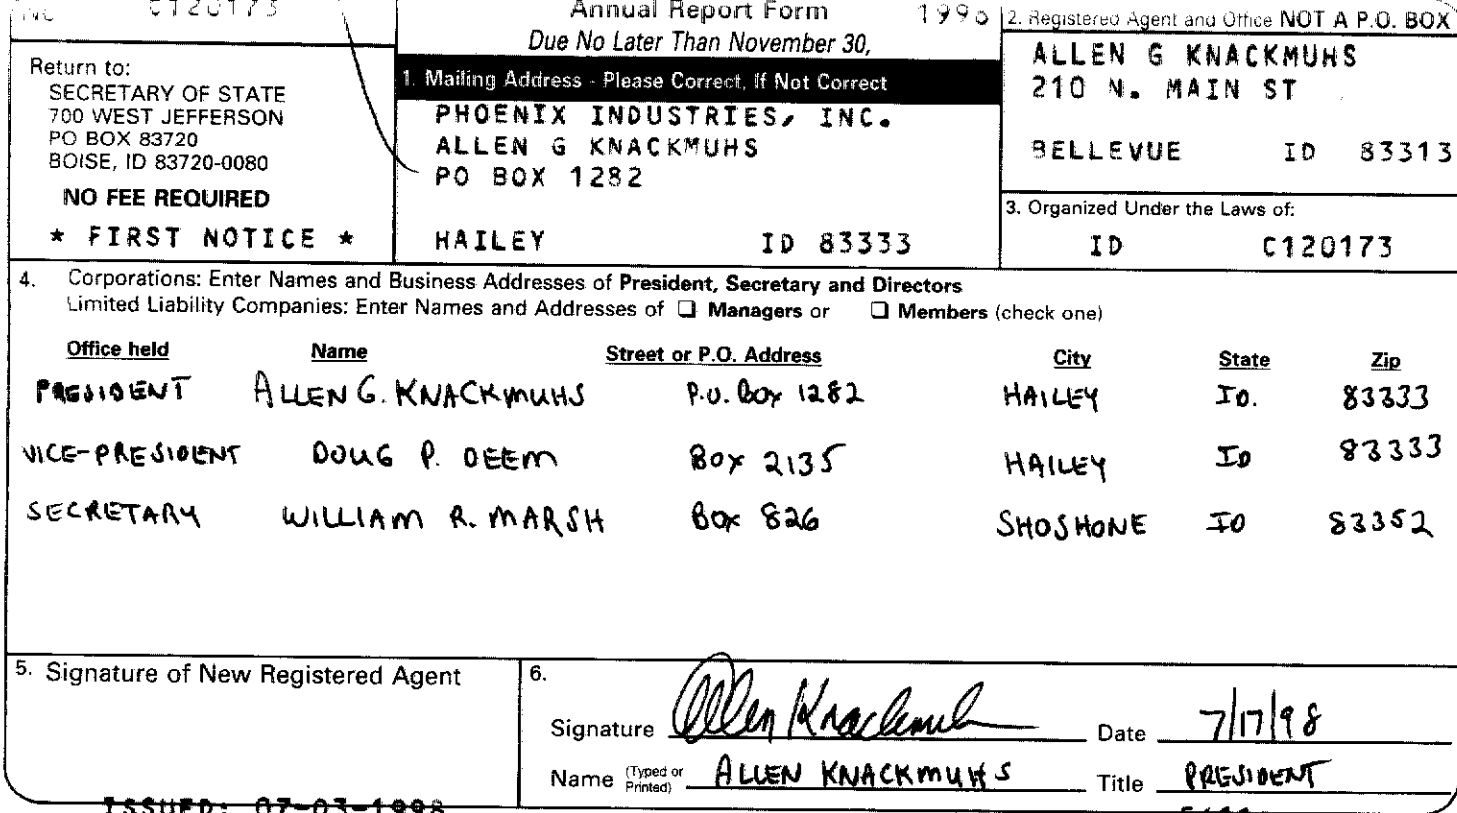 C120173
Annual Report Form
Due No Later Than November 30,
Return to:
SECRETARY OF STATE
700 WEST JEFFERSON
PO BOX 83720
BOISE, ID 83720-0080
NO FEE REQUIRED
* FIRST NOTICE *
1. Mailing Address - Please Correct, If Not Correct
PHOENIX INDUSTRIES, INC.
ALLEN G KNACKMUHS
PO BOX 1282
HAILEY ID 83333
2. Registered Agent and Office NOT A P.O. BOX
ALLEN G KNACKMUHS
210 N. MAIN ST
BELLEVUE ID 83313
3. Organized Under the Laws of:
ID C120173
4. Corporations: Enter Names and Business Addresses of President, Secretary and Directors
Limited Liability Companies: Enter Names and Addresses of ❑ Managers or ❑ Members (check one)
Office held Name Street or P.O. Address City State Zip
PRESIDENT ALLEN G. KNACKMUHS P.O. Box 1282 HAILEY ID. 83333
VICE-PRESIDENT DOUG P. DEEM Box 2135 HAILEY ID 83333
SECRETARY WILLIAM R. MARSH Box 826 SHOSHONE ID 83352
5. Signature of New Registered Agent
6.
Signature Allen Knackmuhs Date 7/17/98
Name (Typed or Printed) ALLEN KNACKMUHS Title PRESIDENT
ISSUED: 07-03-1998